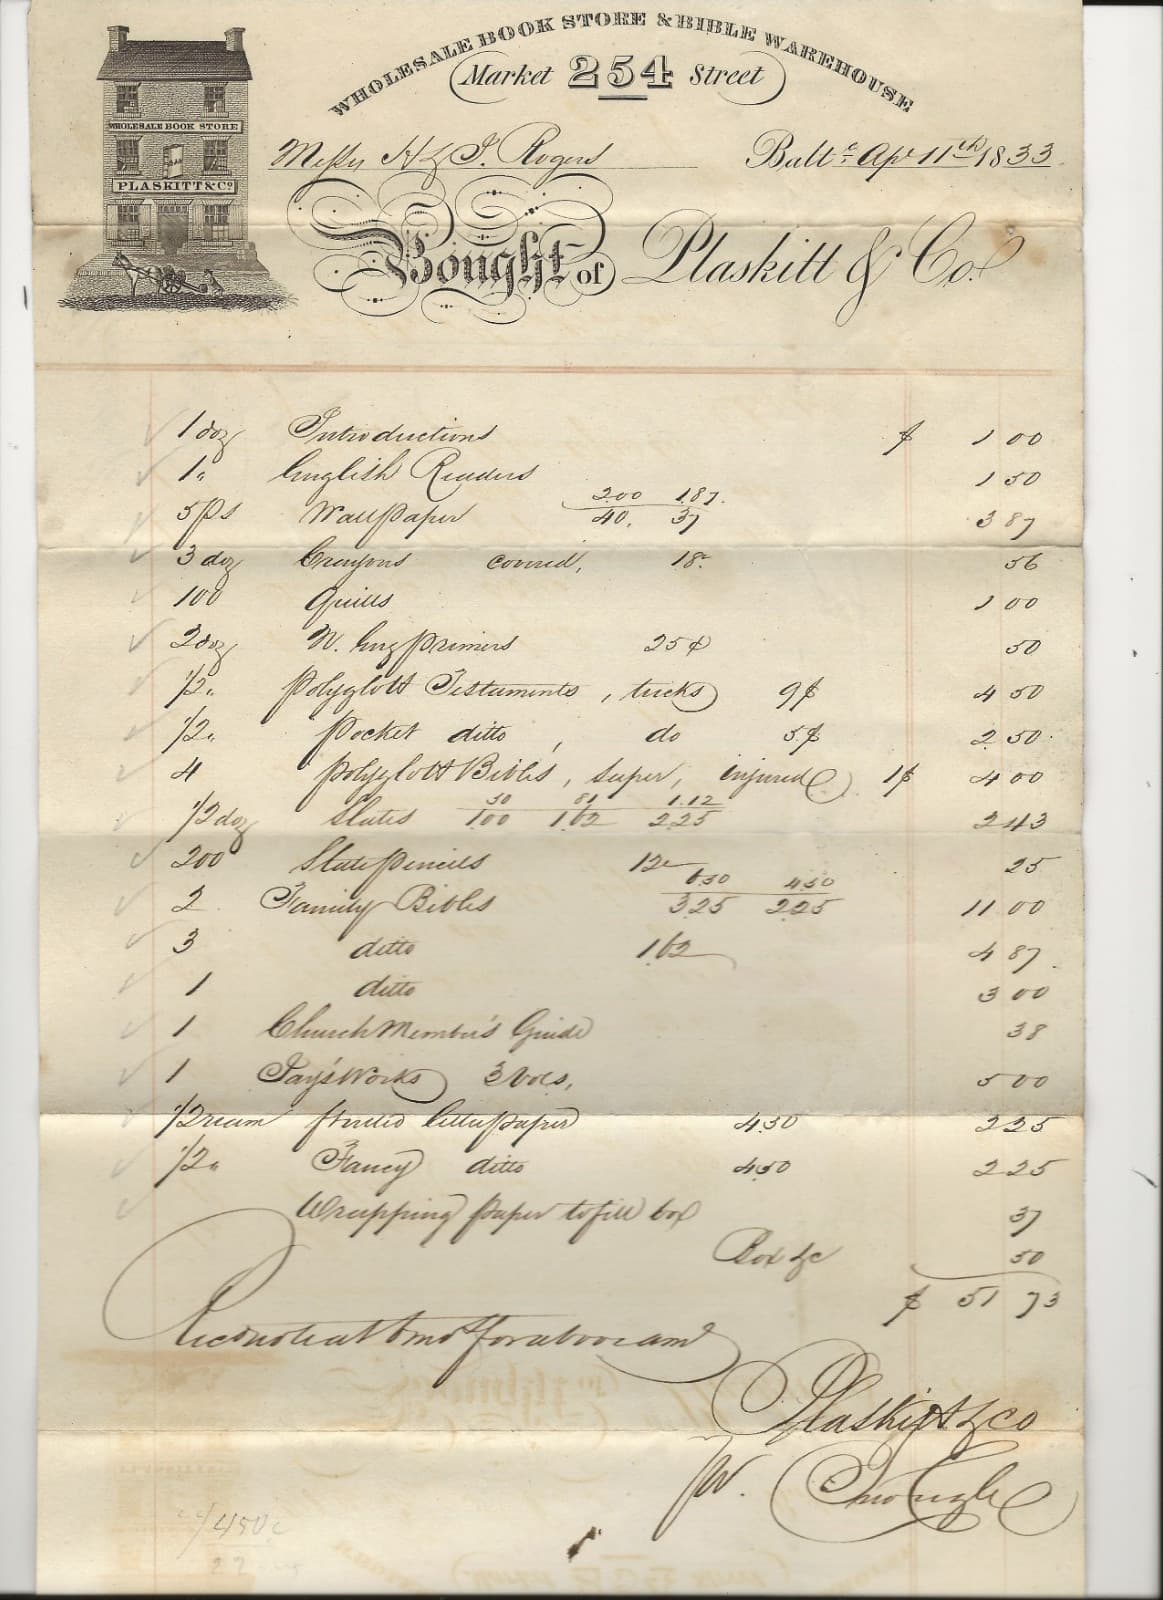 WHOLESALE BOOK STORE & BIBLE WAREHOUSE
Market 254 Street
WHOLESALE BOOK STORE
PLASKITT & Co
Messrs H & J. Rogers Balto Apl 11th 1833
Bought of Plaskitt & Co.
1 doz Introductions $ 1 00
1 " English Readers 1 50
2.00 1.87
5 ps Wall paper 40. 37 3 87
3 doz Crayons covered, 18c 56
100 Quills 1 00
2 doz N. Eng primers 25¢ 50
1/2 " Polyglott Testaments, tucks 9$ 4 50
1/2 " Pocket ditto, do 5$ 2 50
4 Polyglott Bibles, super, injured 1$ 4 00
50 81 1.12
1/2 doz Slates 1.00 1.62 2.25 2 43
200 Slate pencils 12c 25
6.50 4.50
2 Family Bibles 3.25 2.25 11 00
3 ditto 1.62 4 87
1 ditto 3 00
1 Church Member's Guide 38
1 Jay's Works 3 Vols, 5 00
1/2 ream ruled letter paper 4.50 2 25
1/2 " Fancy ditto 4.50 2 25
Wrapping paper to fill box 37
Box &c 50
$ 51 73
Recd note at 6 mos for above amt
Plaskitt & Co
pr.
450
22